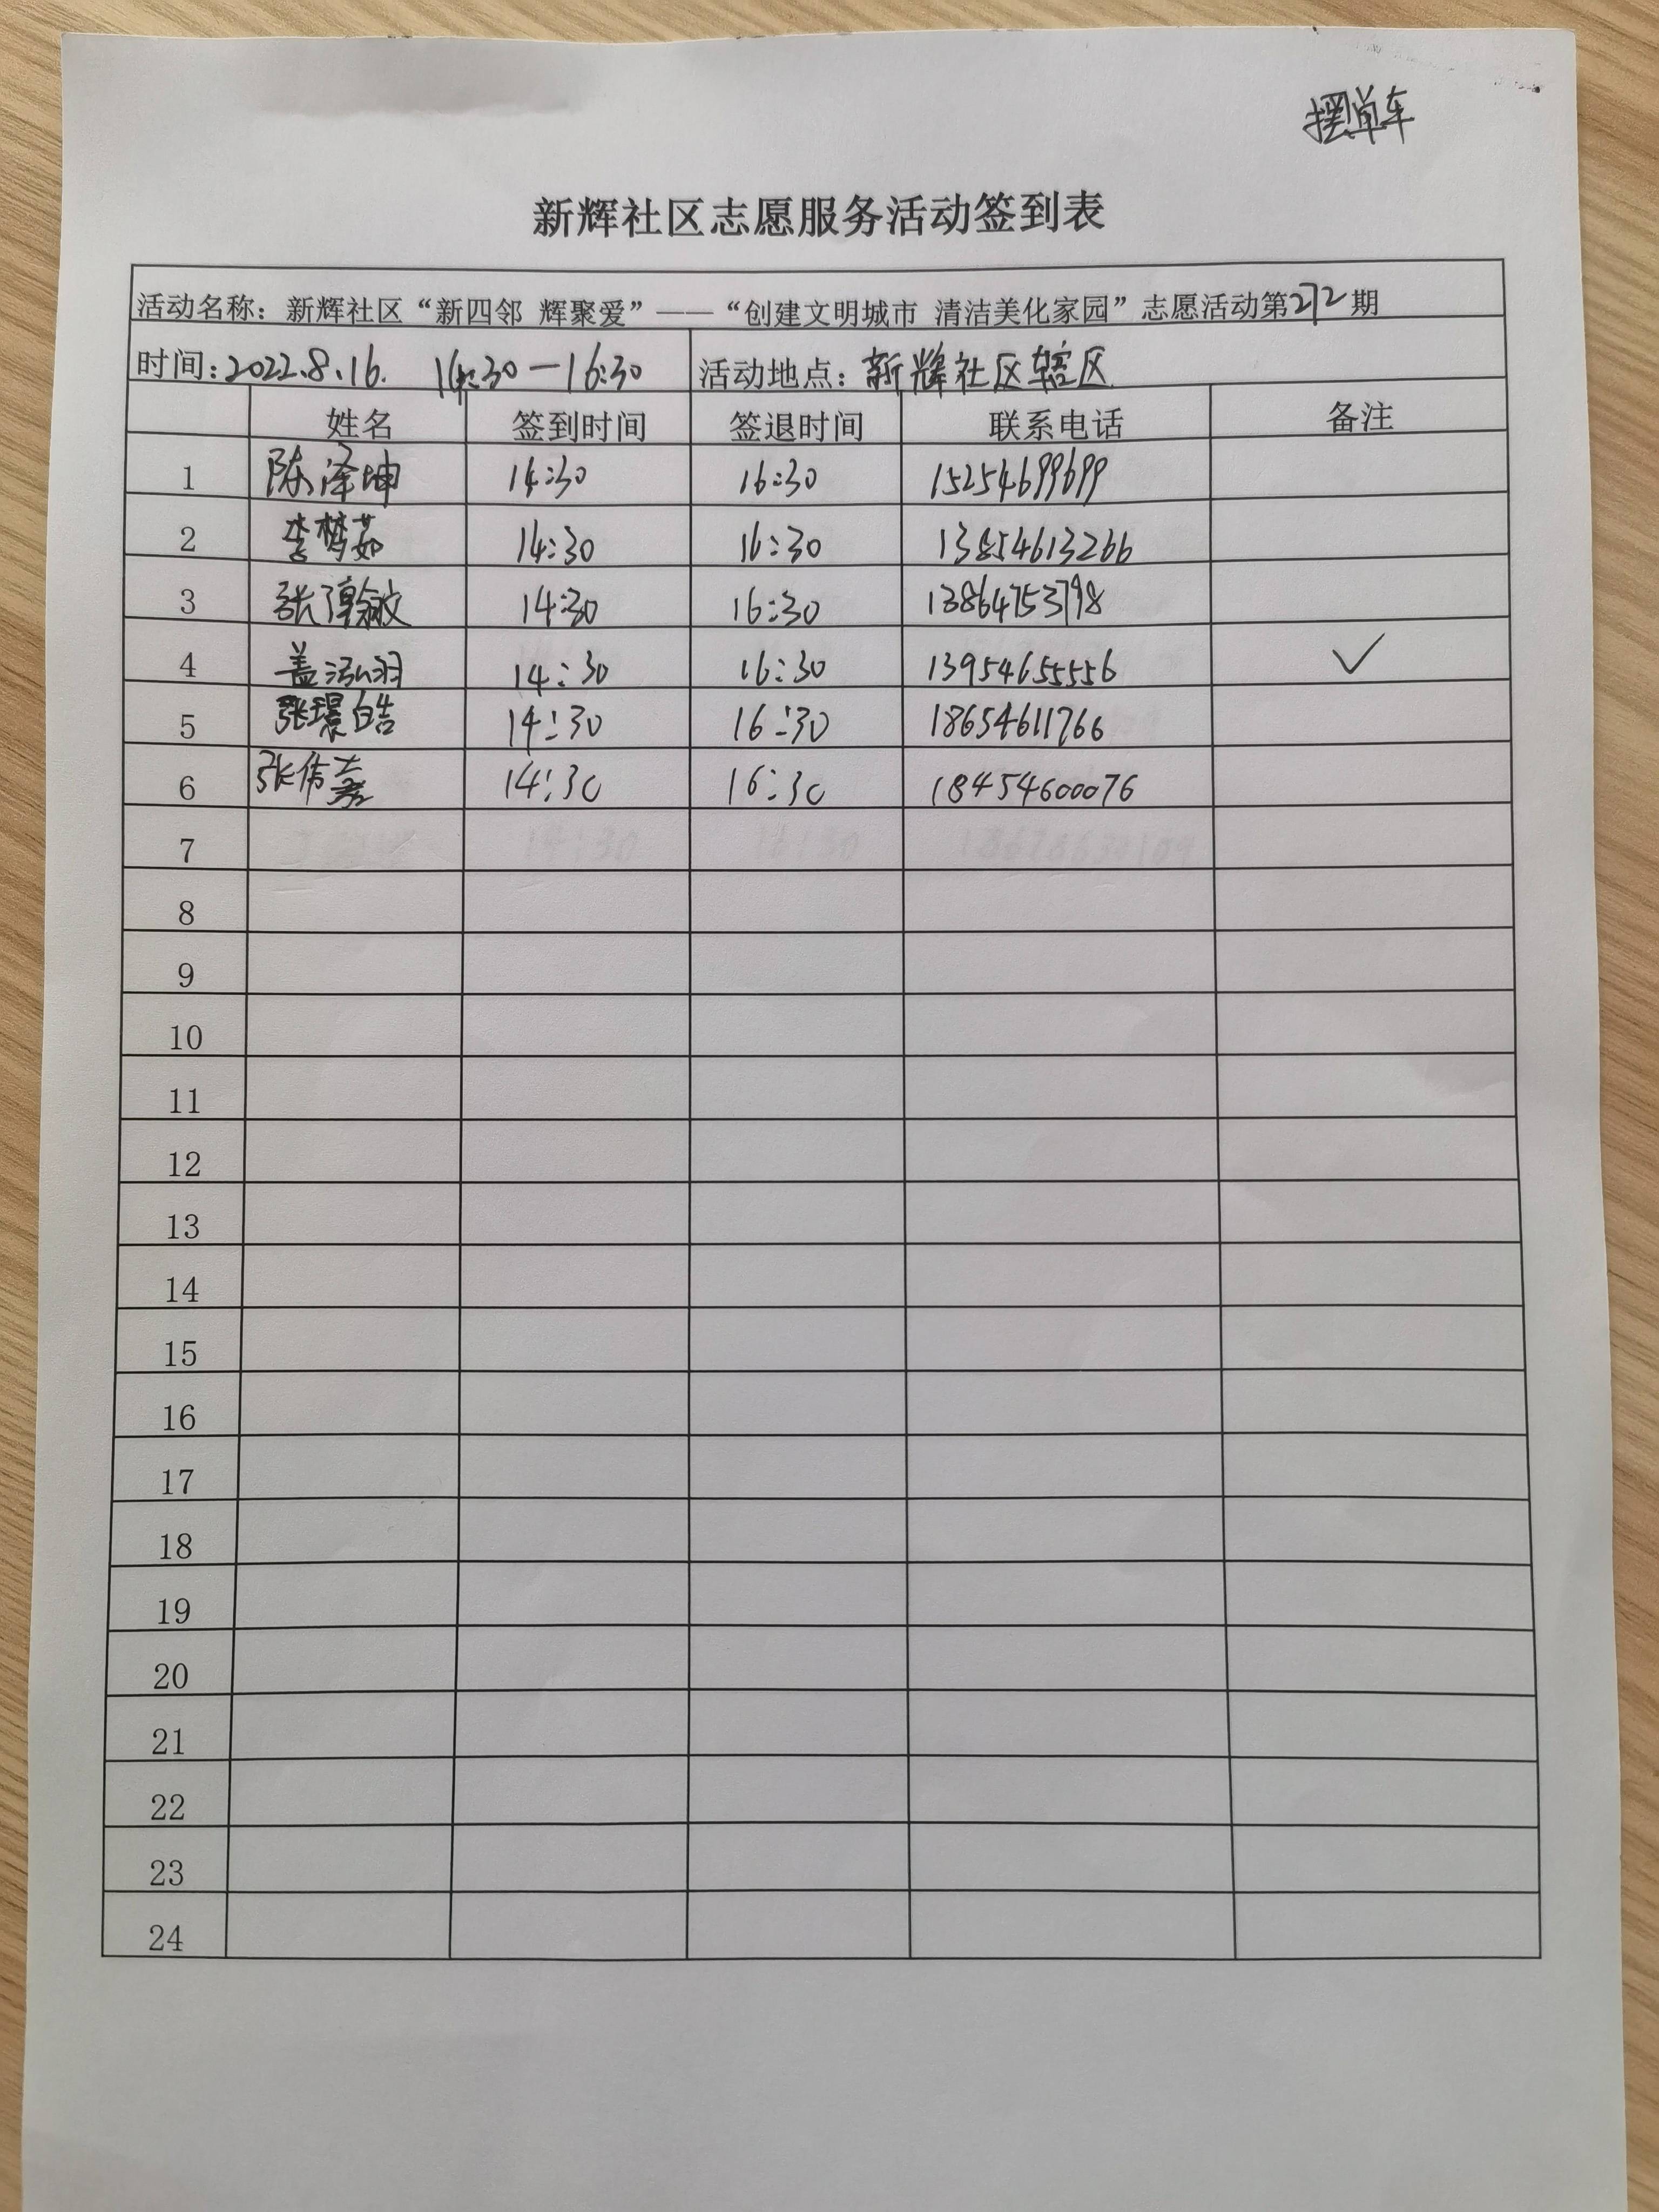 摆单车
新辉社区志愿服务活动签到表
活动名称：新辉社区“新四邻 辉聚爱”——“创建文明城市 清洁美化家园”志愿活动第272期
时间：2022.8.16. 14:30—16:30 活动地点：新辉社区辖区
姓名 签到时间 签退时间 联系电话 备注
1 陈泽坤 14:30 16:30 15254699699
2 李梦茹 14:30 16:30 13854613266
3 张 14:30 16:30 13864753798
4 盖泓羽 14:30 16:30 13954655556 ✓
5 张璟皓 14:30 16:30 18654611766
6 张倚嘉 14:30 16:30 18454600076
7
8
9
10
11
12
13
14
15
16
17
18
19
20
21
22
23
24